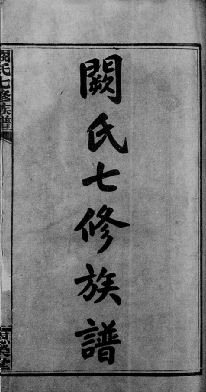 闕氏七修族譜
闕氏七修族譜